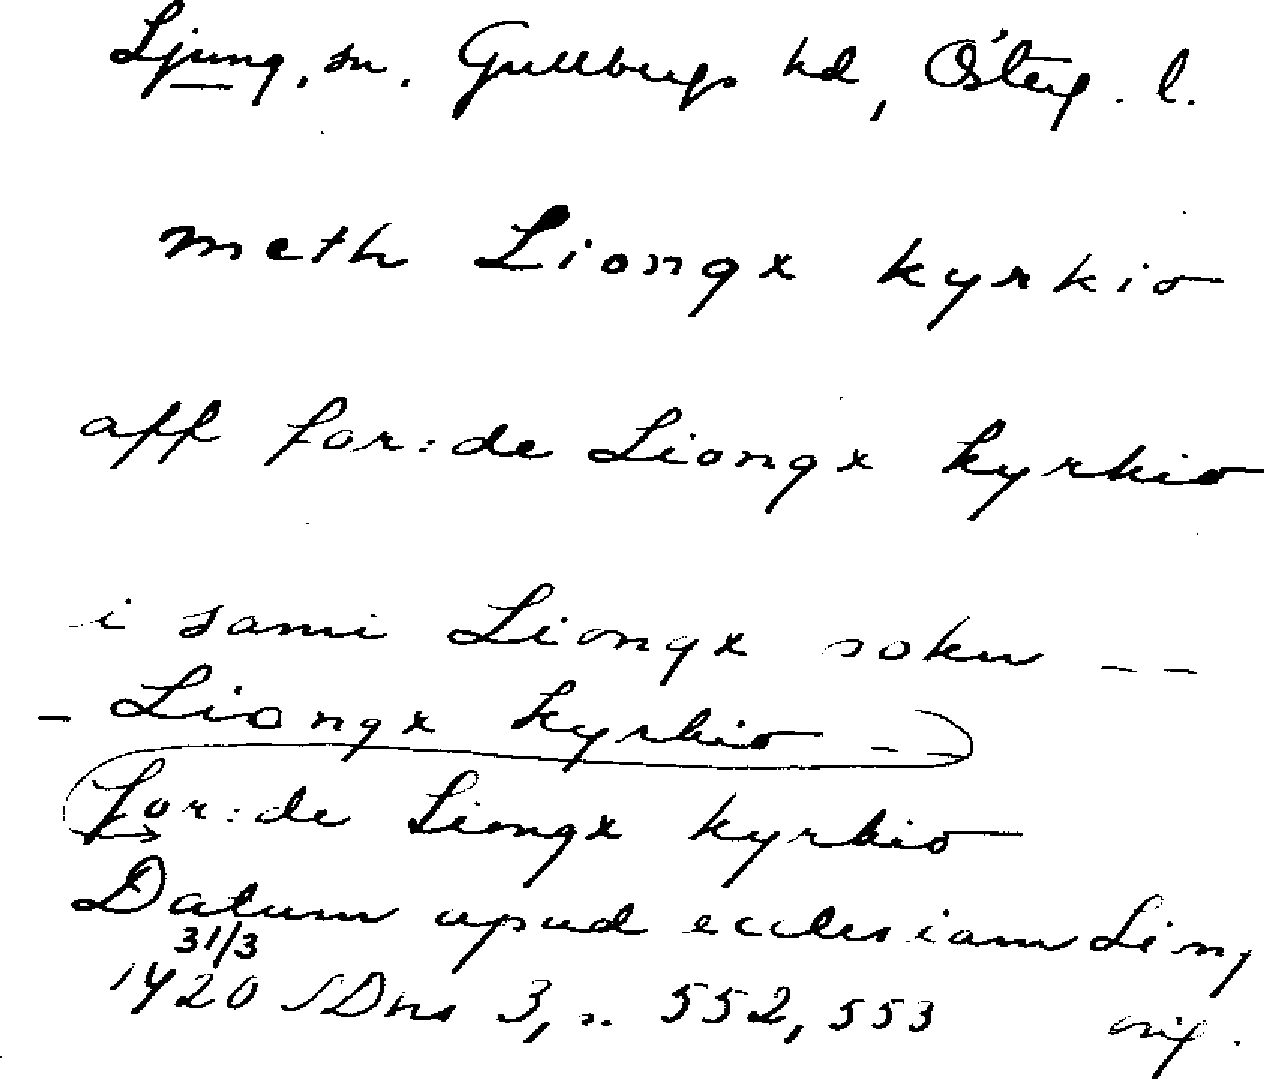 Ljung, sn. Gullbergs hd, Österg. l.
meth Liongx kyrkio
aff for:de Liongx kyrkio
i sami Liongx sokn --
- Liongx kyrkio --
for:de Liongx kyrkio
Datum apud ecclesiam Ling
31/3
1420 SDns 3, s. 552, 553 orig.